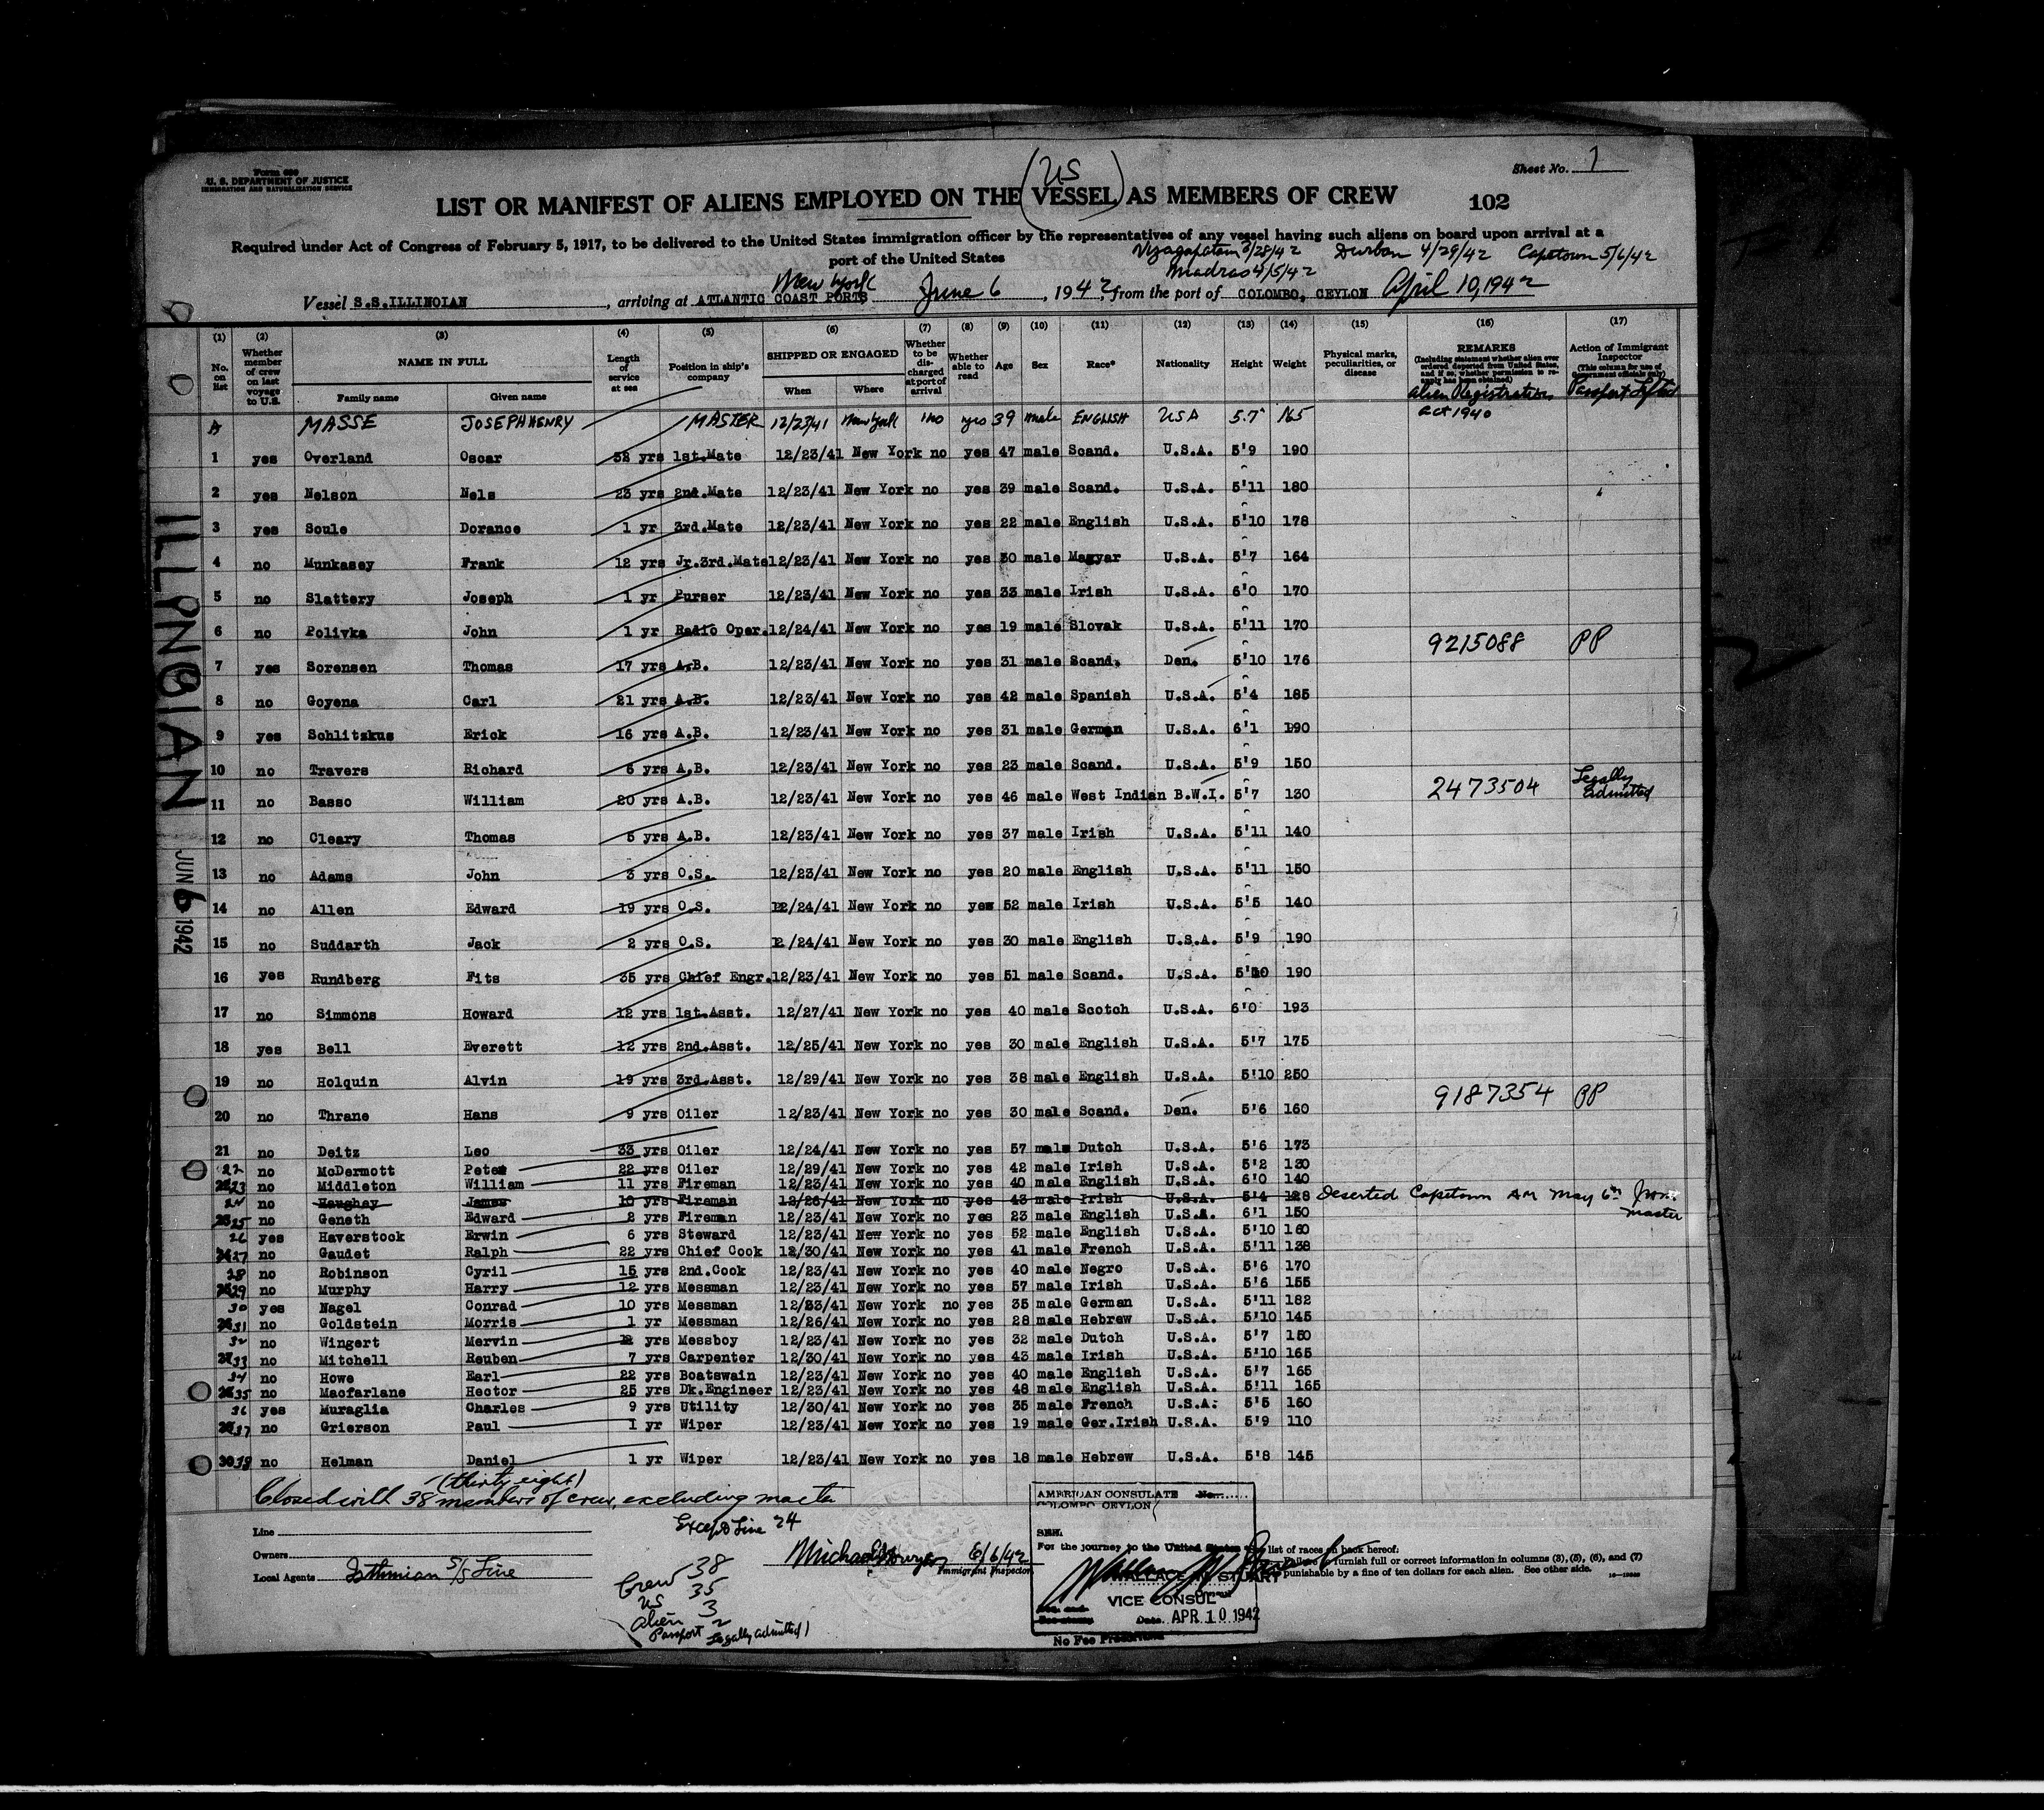 Form 680
U. S. DEPARTMENT OF JUSTICE
IMMIGRATION AND NATURALIZATION SERVICE
Sheet No. 1
(US)
LIST OR MANIFEST OF ALIENS EMPLOYED ON THE VESSEL AS MEMBERS OF CREW
102
Required under Act of Congress of February 5, 1917, to be delivered to the United States immigration officer by the representatives of any vessel having such aliens on board upon arrival at a
port of the United States
Vizagapatam 3/28/42 Durban 4/29/42 Capetown 5/6/42
Madras 4/5/42
New York
Vessel S.S.ILLINOIAN, arriving at ATLANTIC COAST PORTS June 6, 1942, from the port of COLOMBO, CEYLON April 10, 1942
(1) (2) (3) (4) (5) (6) (7) (8) (9) (10) (11) (12) (13) (14) (15) (16) (17)
No. on list
Whether member of crew on last voyage to U.S.
NAME IN FULL
Family name
Given name
Length of service at sea
Position in ship's company
SHIPPED OR ENGAGED
When
Where
Whether to be discharged at port of arrival
Whether able to read
Age
Sex
Race*
Nationality
Height
Weight
Physical marks, peculiarities, or disease
REMARKS
(Including statement whether alien ever ordered deported from United States, and if so, whether permission to reapply has been obtained)
Alien Registration
Act 1940
Action of Immigrant Inspector
(This column for use of Government officials only)
Passport Lifted
MASSE JOSEPH HENRY MASTER 12/23/41 New York no yes 39 male ENGLISH USA 5.7 165
1 yes Overland Oscar 32 yrs 1st.Mate 12/23/41 New York no yes 47 male Scand. U.S.A. 5'9 190
2 yes Nelson Nels 23 yrs 2nd.Mate 12/23/41 New York no yes 39 male Scand. U.S.A. 5'11 180
3 yes Soule Dorance 1 yr 3rd.Mate 12/23/41 New York no yes 22 male English U.S.A. 5'10 178
4 no Munkasey Frank 12 yrs Jr.3rd.Mate 12/23/41 New York no yes 30 male Magyar U.S.A. 5'7 164
5 no Slattery Joseph 1 yr Purser 12/23/41 New York no yes 33 male Irish U.S.A. 6'0 170
6 no Polivka John 1 yr Radio Oper. 12/24/41 New York no yes 19 male Slovak U.S.A. 5'11 170
7 yes Sorensen Thomas 17 yrs A.B. 12/23/41 New York no yes 31 male Scand. Den. 5'10 176 9215088 PP
8 no Goyena Carl 21 yrs A.B. 12/23/41 New York no yes 42 male Spanish U.S.A. 5'4 185
9 yes Schlitzkus Erick 16 yrs A.B. 12/23/41 New York no yes 31 male German U.S.A. 6'1 190
10 no Travers Richard 6 yrs A.B. 12/23/41 New York no yes 23 male Scand. U.S.A. 5'9 150
11 no Basso William 20 yrs A.B. 12/23/41 New York no yes 46 male West Indian B.W.I. 5'7 130 2473504 Legally Admitted
12 no Cleary Thomas 5 yrs A.B. 12/23/41 New York no yes 37 male Irish U.S.A. 5'11 140
13 no Adams John 3 yrs O.S. 12/23/41 New York no yes 20 male English U.S.A. 5'11 150
14 no Allen Edward 19 yrs O.S. 12/24/41 New York no yes 52 male Irish U.S.A. 5'5 140
15 no Suddarth Jack 2 yrs O.S. 12/24/41 New York no yes 30 male English U.S.A. 5'9 190
16 yes Rundberg Fits 35 yrs Chief Engr. 12/23/41 New York no yes 51 male Scand. U.S.A. 5'10 190
17 no Simmons Howard 12 yrs 1st.Asst. 12/27/41 New York no yes 40 male Scotch U.S.A. 6'0 193
18 yes Bell Everett 12 yrs 2nd.Asst. 12/25/41 New York no yes 30 male English U.S.A. 5'7 175
19 no Holquin Alvin 19 yrs 3rd.Asst. 12/29/41 New York no yes 38 male English U.S.A. 5'10 250
20 no Thrane Hans 9 yrs Oiler 12/23/41 New York no yes 30 male Scand. Den. 5'6 160 9187354 PP
21 no Deitz Leo 33 yrs Oiler 12/24/41 New York no yes 57 male Dutch U.S.A. 5'6 173
22 no McDermott Peter 22 yrs Oiler 12/29/41 New York no yes 42 male Irish U.S.A. 5'2 130
23 no Middleton William 11 yrs Fireman 12/23/41 New York no yes 40 male English U.S.A. 6'0 140
24 no Haughay James 10 yrs Fireman 12/26/41 New York no yes 43 male Irish U.S.A. 5'4 128 Deserted Capetown AM May 6th
master
25 no Geneth Edward 2 yrs Fireman 12/23/41 New York no yes 23 male English U.S.A. 6'1 150
26 yes Haverstock Erwin 6 yrs Steward 12/23/41 New York no yes 52 male English U.S.A. 5'10 160
27 no Gaudet Ralph 22 yrs Chief Cook 12/30/41 New York no yes 41 male French U.S.A. 5'11 138
28 no Robinson Cyril 15 yrs 2nd.Cook 12/23/41 New York no yes 40 male Negro U.S.A. 5'6 170
29 no Murphy Harry 12 yrs Messman 12/23/41 New York no yes 57 male Irish U.S.A. 5'6 155
30 yes Nagel Conrad 10 yrs Messman 12/23/41 New York no yes 35 male German U.S.A. 5'11 182
31 no Goldstein Morris 1 yr Messman 12/26/41 New York no yes 28 male Hebrew U.S.A. 5'10 145
32 no Wingert Mervin yrs Messboy 12/23/41 New York no yes 32 male Dutch U.S.A. 5'7 150
33 no Mitchell Reuben 7 yrs Carpenter 12/30/41 New York no yes 43 male Irish U.S.A. 5'10 165
34 no Howe Earl 22 yrs Boatswain 12/23/41 New York no yes 40 male English U.S.A. 5'7 165
35 no Macfarlane Hector 25 yrs Dk.Engineer 12/23/41 New York no yes 48 male English U.S.A. 5'11 165
36 yes Muraglia Charles 9 yrs Utility 12/30/41 New York no yes 35 male French U.S.A. 5'5 160
37 no Grierson Paul 1 yr Wiper 12/23/41 New York no yes 19 male Ger.Irish U.S.A. 5'9 110
38 no Helman Daniel 1 yr Wiper 12/23/41 New York no yes 18 male Hebrew U.S.A. 5'8 145
(thirty eight)
Closed with 38 members of crew, excluding master
Except Line 24
ILLINOIAN
JUN 6 1942
Line
Owners
Local Agents Isthmian S/S Line
Crew 38
US 35
Alien 3
Passport 2
Legally admitted 1
6/6/42
Immigrant Inspector
AMERICAN CONSULATE No.
COLOMBO CEYLON
SEEN
For the journey to the United States
WALLACE W. STUART
VICE CONSUL
Date APR 10 1942
No Fee Prescribed
list of races on back hereof.
furnish full or correct information in columns (3), (5), (6), and (7)
punishable by a fine of ten dollars for each alien. See other side.